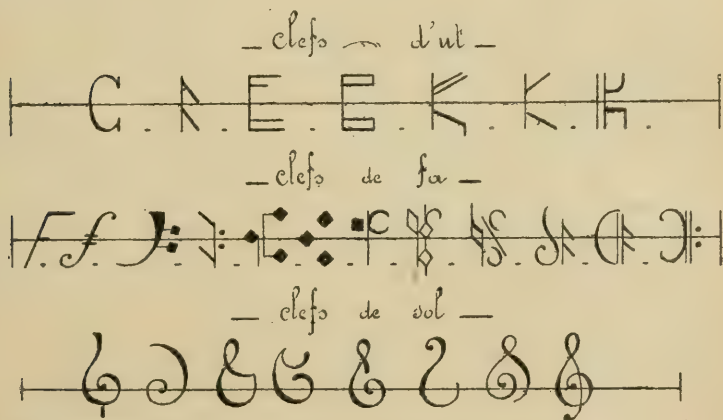 — clefs — d'ut —
— clefs de fa —
— clefs de sol —